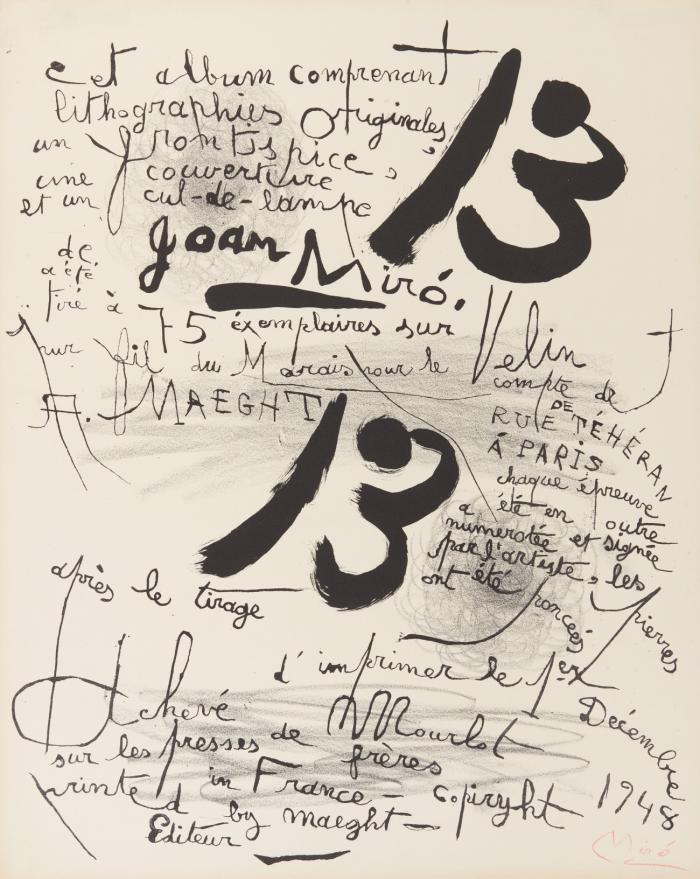 cet album comprenant 13
lithographies Originales,
un frontispice,
une couverture
et un cul-de-lampe
de Joan Miró.
a été
tiré à 75 éxemplaires sur Vélin
pur fil du Marais pour le compte de
A. MAEGHT 13 RUE DE TÉHÉRAN
Á PARIS
chaque épreuve
a été en outre
numerotée et signée
par l'artiste, les pierres
ont été poncées
après le tirage
Achevé d'imprimer le 1er Décembre 1948
sur les presses de Mourlot
frères
printed in France - copiryht
by maeght -
Editeur
Miró